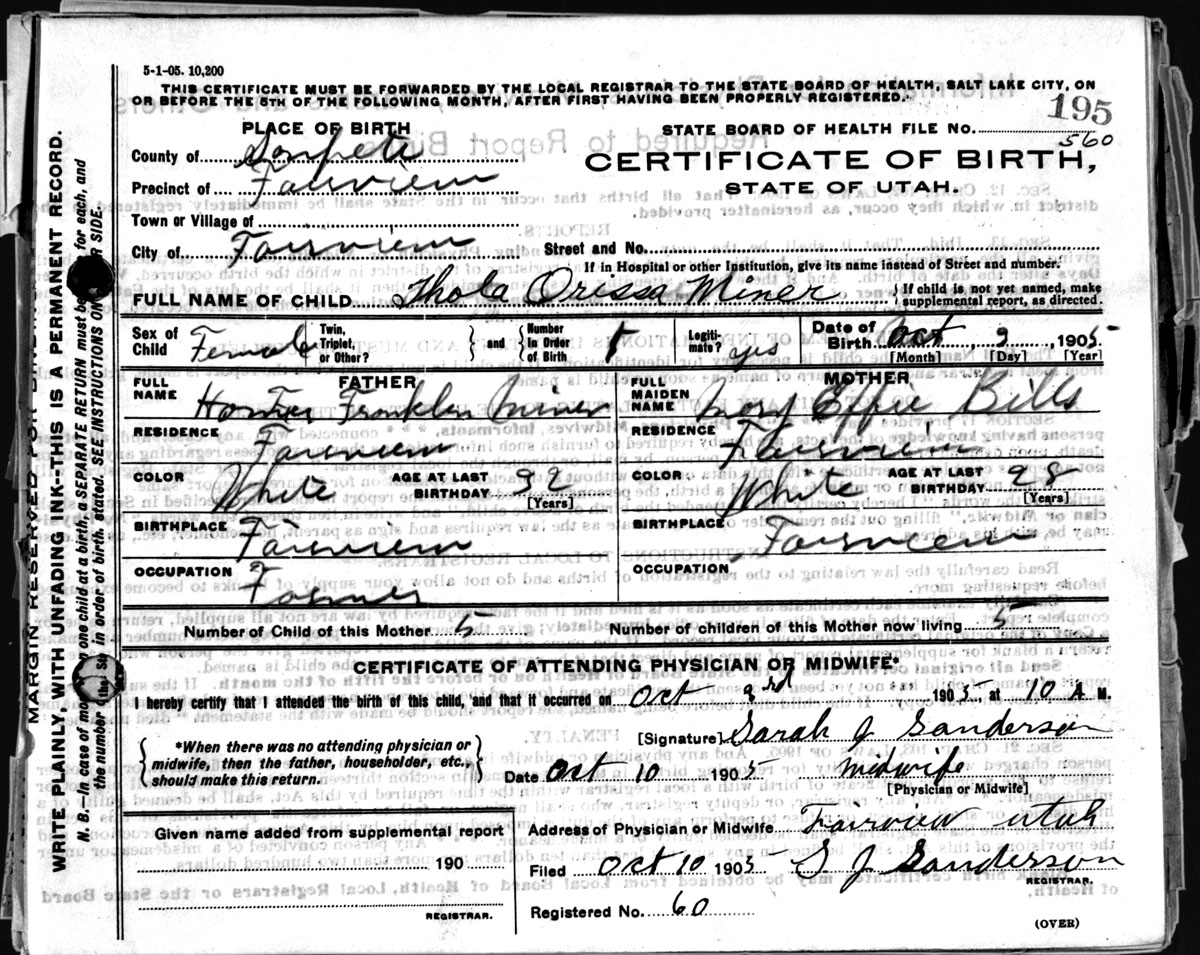 5-1-05. 10,200
THIS CERTIFICATE MUST BE FORWARDED BY THE LOCAL REGISTRAR TO THE STATE BOARD OF HEALTH, SALT LAKE CITY, ON
OR BEFORE THE 5TH OF THE FOLLOWING MONTH, AFTER FIRST HAVING BEEN PROPERLY REGISTERED.
195
PLACE OF BIRTH
STATE BOARD OF HEALTH FILE NO.
560
County of Sanpete
CERTIFICATE OF BIRTH,
STATE OF UTAH.
Precinct of Fairview
Town or Village of
City of Fairview Street and No.
If in Hospital or other Institution, give its name instead of Street and number.
FULL NAME OF CHILD Thola Orissa Miner { If child is not yet named, make supplemental report, as directed.
Sex of Child Female Twin, Triplet, or Other? } and { Number in Order of Birth 1 Legitimate? yes Date of Birth Oct 1905
[Month] [Day] [Year]
FATHER MOTHER
FULL NAME Homer Franklin Miner FULL MAIDEN NAME Mary Effie Bills
RESIDENCE Fairview RESIDENCE Fairview
COLOR White AGE AT LAST BIRTHDAY 32 [Years] COLOR White AGE AT LAST BIRTHDAY 28 [Years]
BIRTHPLACE Fairview BIRTHPLACE Fairview
OCCUPATION Farmer OCCUPATION
Number of Child of this Mother 5 Number of children of this Mother now living 5
CERTIFICATE OF ATTENDING PHYSICIAN OR MIDWIFE*
I hereby certify that I attended the birth of this child, and that it occurred on Oct 3rd 1905 at 10 A M.
[Signature] Sarah J Sanderson
{ *When there was no attending physician or midwife, then the father, householder, etc., should make this return. }
Date Oct 10 1905 Midwife
[Physician or Midwife]
Given name added from supplemental report
190
REGISTRAR.
Address of Physician or Midwife Fairview Utah
Filed Oct 10 1905 S J Sanderson
REGISTRAR.
Registered No. 60
(OVER)
MARGIN RESERVED FOR
WRITE PLAINLY, WITH UNFADING INK--THIS IS A PERMANENT RECORD.
N. B.—In case of more one child at a birth, a SEPARATE RETURN must be for each, and
the number in order of birth, stated. SEE INSTRUCTIONS ON SIDE.